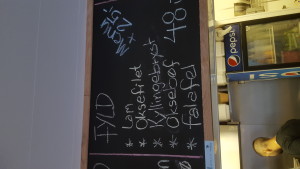 FYLD
* Lam
* Oksefilet
* Kyllingebryst
* Oksebøf
* Falafel
48
Menu
+ 25,-
pepsi